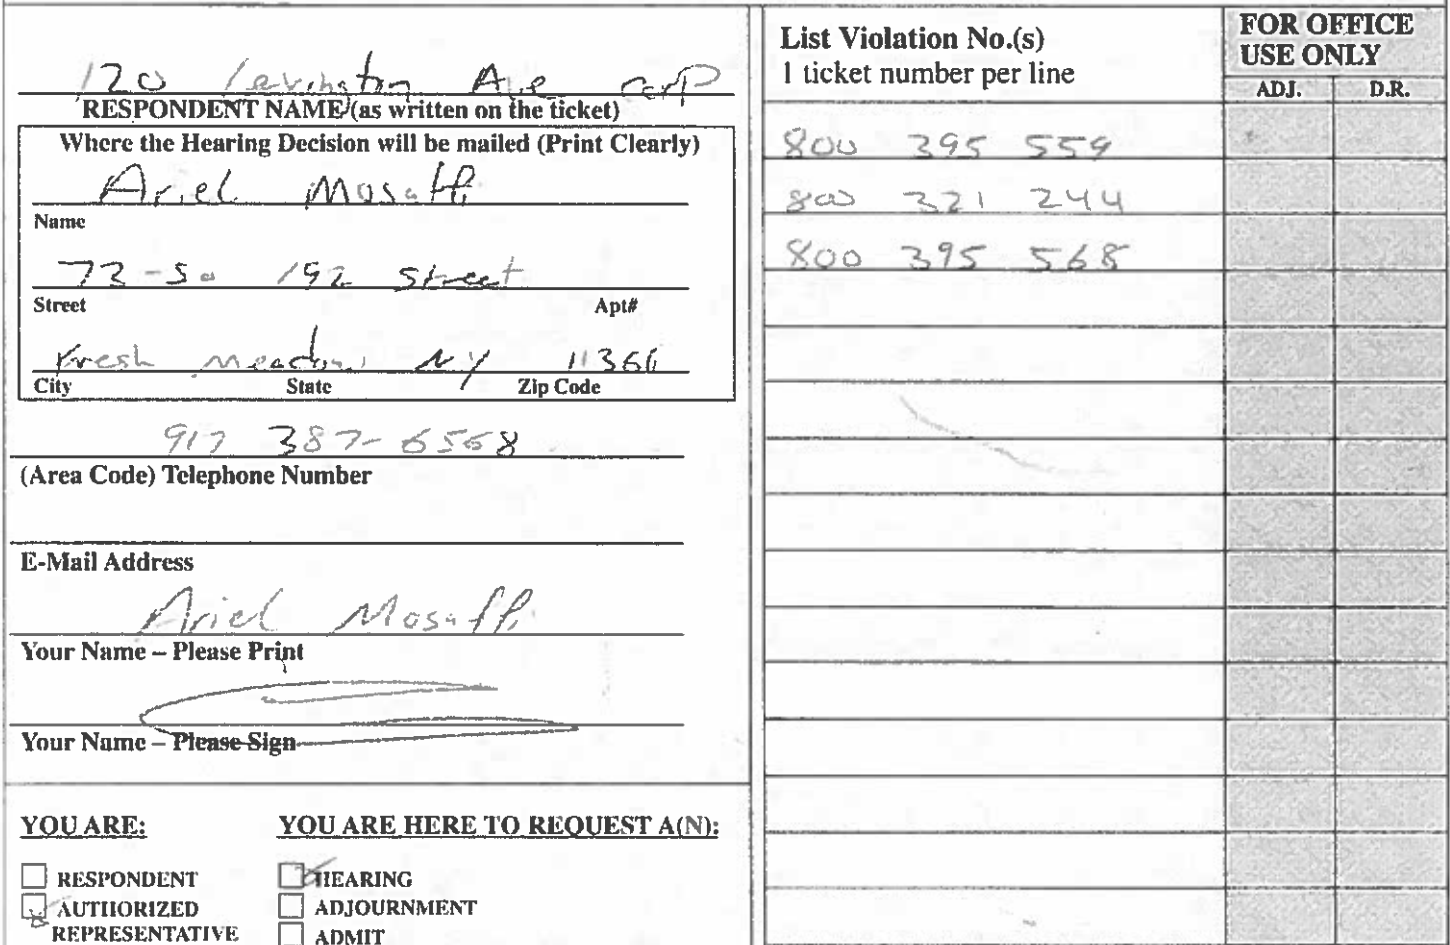 120 Lexington Ave corp
RESPONDENT NAME (as written on the ticket)
Where the Hearing Decision will be mailed (Print Clearly)
Ariel Mosaffi
Name
73-50 192 Street
Street Apt#
Fresh Meadows NY 11366
City State Zip Code
917 387-6568
(Area Code) Telephone Number
E-Mail Address
Ariel Mosaffi
Your Name – Please Print
Your Name – Please Sign
YOU ARE:
RESPONDENT
AUTHORIZED
REPRESENTATIVE
YOU ARE HERE TO REQUEST A(N):
HEARING
ADJOURNMENT
ADMIT
List Violation No.(s)
1 ticket number per line
FOR OFFICE
USE ONLY
ADJ. D.R.
800 395 559
800 321 244
800 395 568